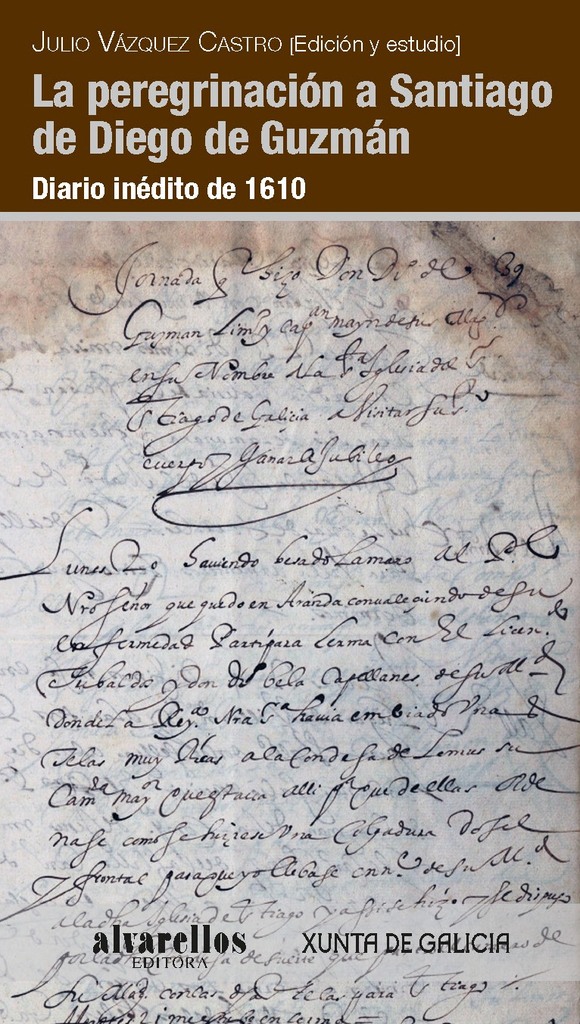 JULIO VÁZQUEZ CASTRO [Edición y estudio]
La peregrinación a Santiago
de Diego de Guzmán
Diario inédito de 1610
Jornada q hizo Don Di.º de
Guzman Lim.ro y cap.an mayor de su Mag.d
en su Nombre a la S.ta Iglesia de S.
Tiago de Galicia a Visitar su S.to
cuerpo y Ganar el Jubileo
Lunes 20 haviendo besado la mano al Rey
Nro Señor que quedo en Aranda convaleciendo de su
enfermedad Parti para Lerma con El Licen.do
Tribaldos y don di.º bela Capellanes de su M.d
donde la Rey.na Nra S.ra havia embiado Una
Telas muy Ricas a la Condesa de Lemus su
Cam.ra may.or que estava alli p.a que de ellas orde
nase como se hiziese Una Colgadura dosel
y frontal para que yo llebase en n.e de su M.d
a la dha Iglesia de S Tiago y assi se hizo y se dispuso
alvarellos
EDITORA
XUNTA DE GALICIA